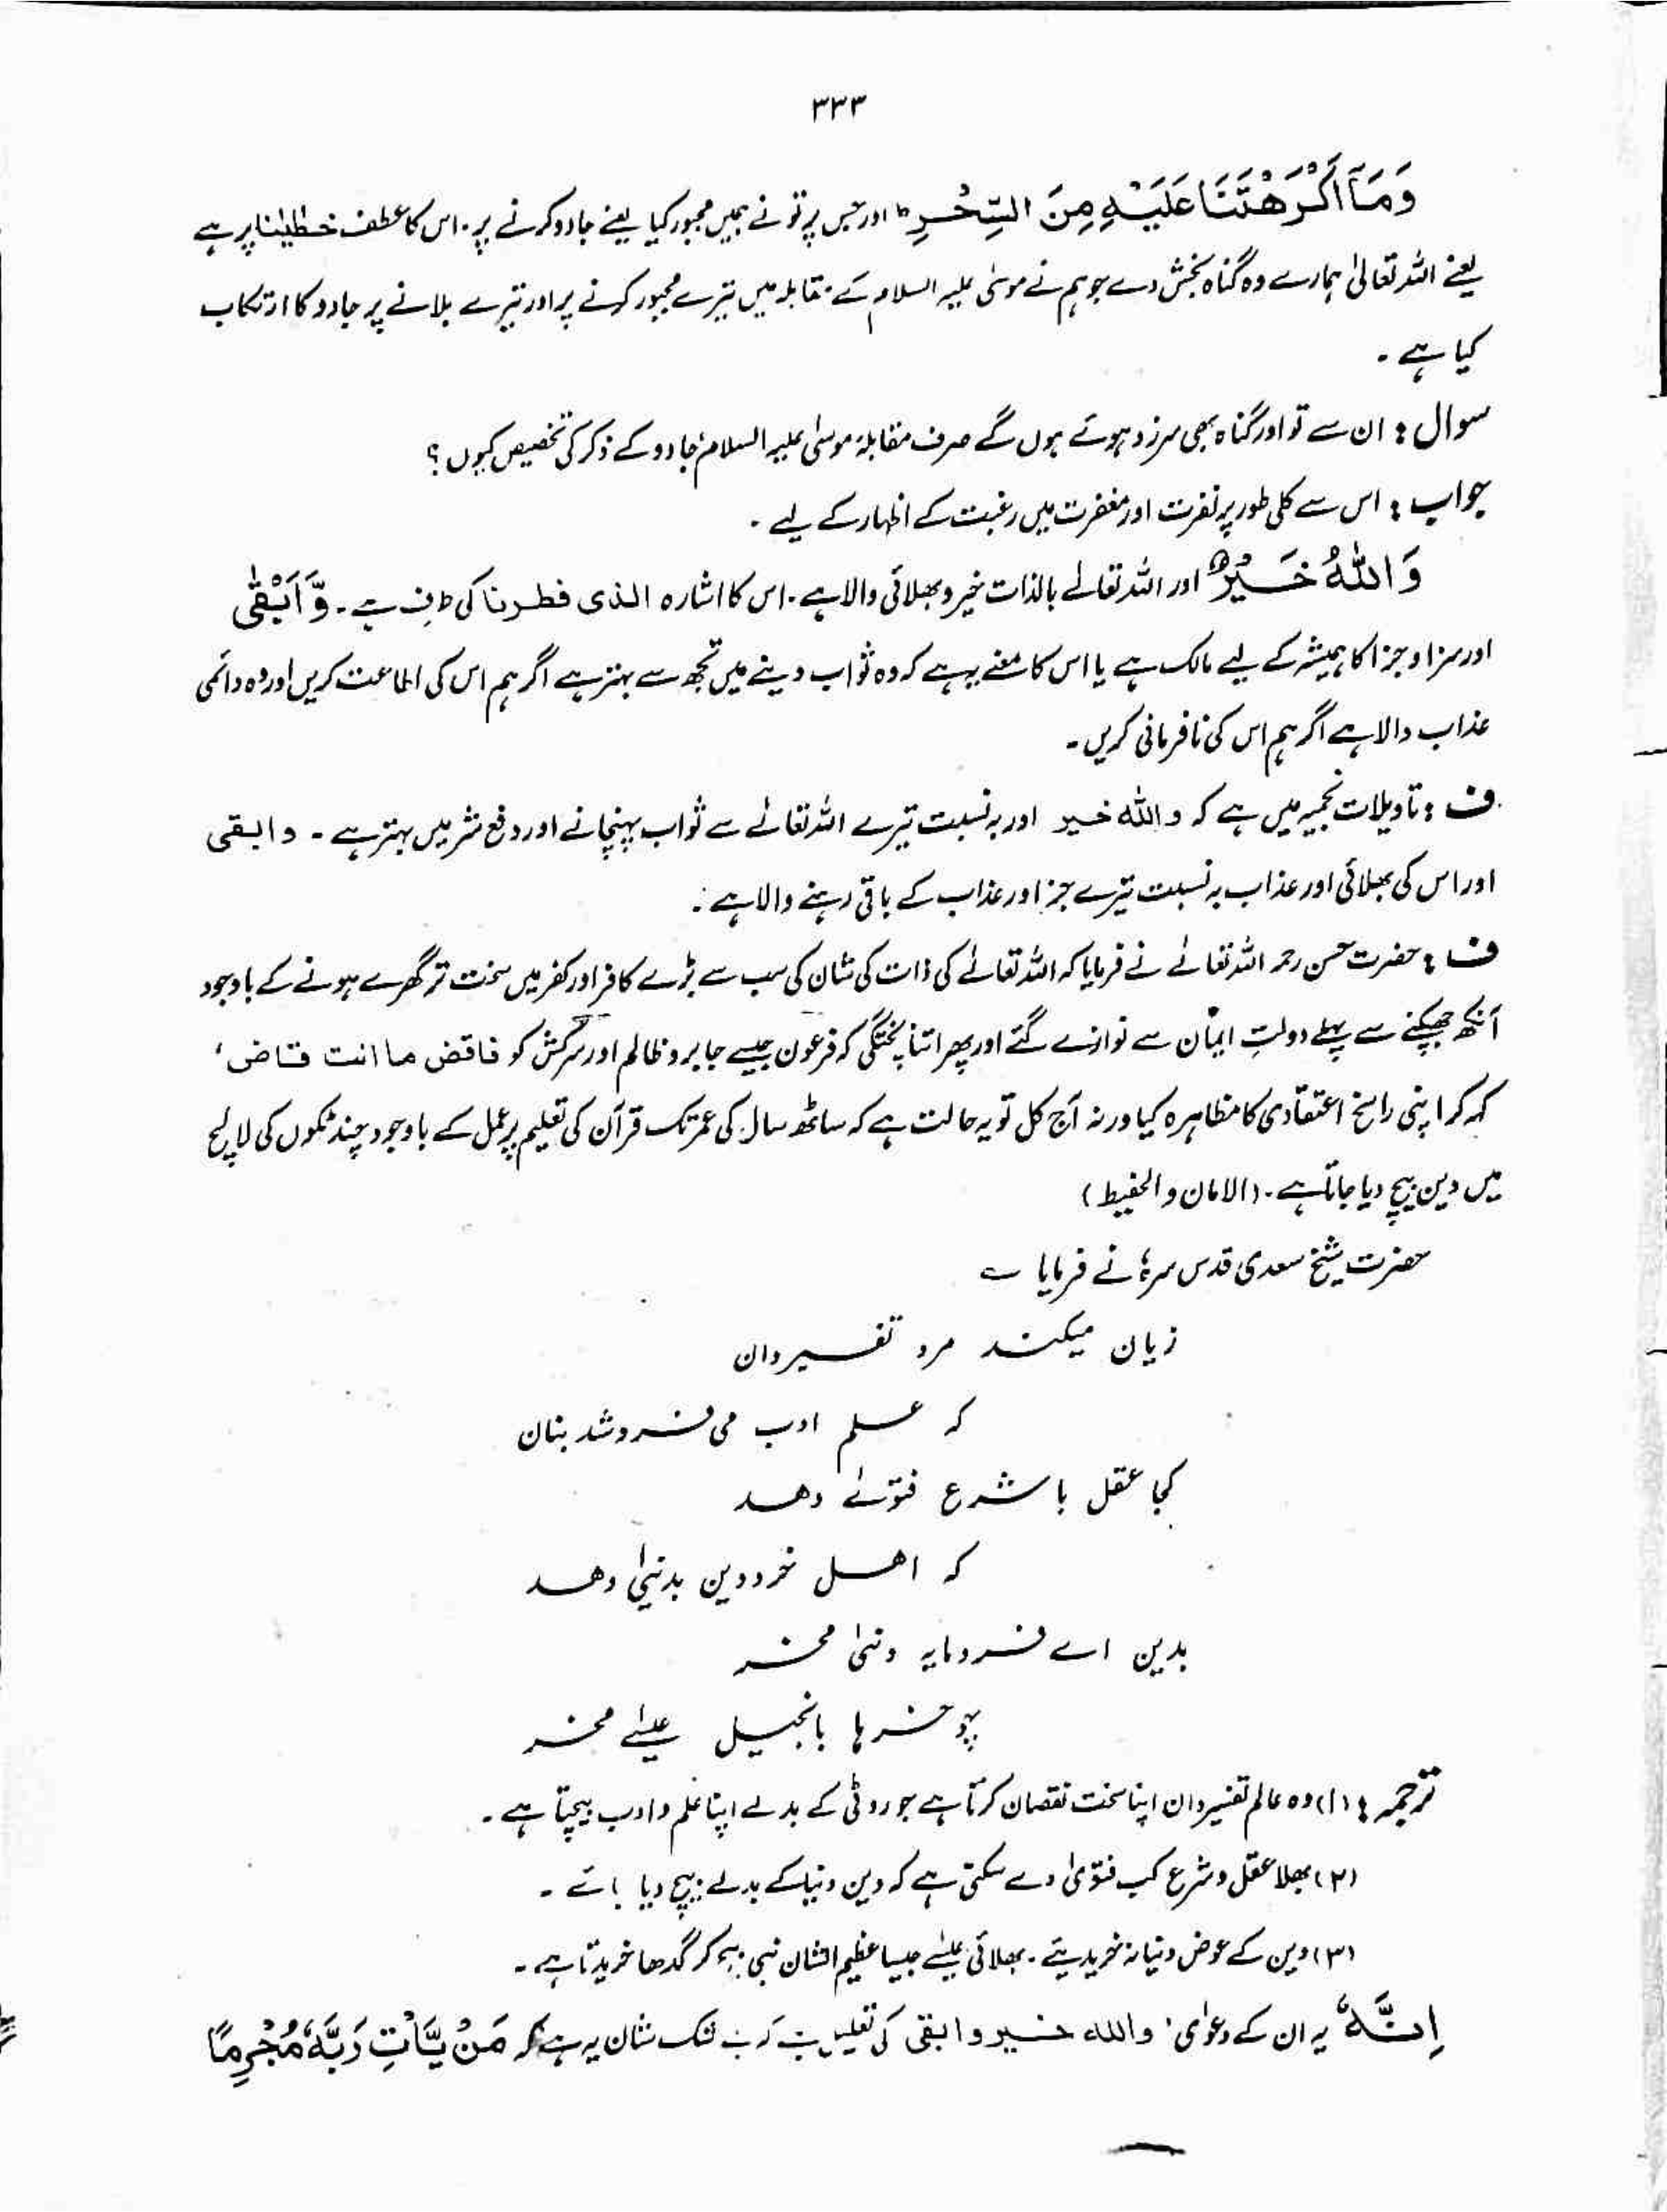 ۳۳۳
وَمَآ اَكْرَهْتَنَا عَلَيْهِ مِنَ السِّحْرِ ؕ اور جس پر تو نے ہمیں مجبور کیا یعنے جادو کرنے پر۔ اس کا عطف خطٰیٰنا پر ہے
یعنے اللہ تعالیٰ ہمارے وہ گناہ بخش دے جو ہم نے موسٰی علیہ السلام کے مقابلہ میں تیرے مجبور کرنے پر اور تیرے بلانے پر جادو کا ارتکاب
کیا ہے ۔
سوال : ان سے تو اور گناہ بھی سرزد ہوئے ہوں گے صرف مقابلۂ موسٰی علیہ السلام جادو کے ذکر کی تخصیص کیوں ؟
جواب : اس سے کلی طور پر نفرت اور مغفرت میں رغبت کے اظہار کے لیے ۔
وَاللّٰهُ خَيْرٌ اور اللہ تعالےٰ بالذات خیر و بھلائی والا ہے ۔ اس کا اشارہ الذی فطرنا کی طرف ہے ۔ وَّ اَبْقٰى
اور سزا و جزا کا ہمیشہ کے لیے مالک ہے یا اس کا معنے یہ ہے کہ وہ ثواب دینے میں تجھ سے بہتر ہے اگر ہم اس کی اطاعت کریں اور وہ دائمی
عذاب والا ہے اگر ہم اس کی نافرمانی کریں ۔
ف : تاویلات نجمیہ میں ہے کہ واللہ خیر اور بہ نسبت تیرے اللہ تعالےٰ سے ثواب پہنچانے اور دفع شر میں بہتر ہے ۔ وابقی
اور اس کی بھلائی اور عذاب بہ نسبت تیرے جزا اور عذاب کے باقی رہنے والا ہے ۔
ف : حضرت حسن رحمہ اللہ تعالےٰ نے فرمایا کہ اللہ تعالےٰ کی ذات کی شان کی سب سے بڑے کافر اور کفر میں سخت تر گھرے ہونے کے باوجود
آنکھ جھپکنے سے پہلے دولتِ ایمان سے نوازے گئے اور پھر اتنا پختگی کہ فرعون جیسے جابر و ظالم اور سرکش کو فاقض ما انت قاض ،
کہہ کر اپنی راسخ اعتقادی کا مظاہرہ کیا ورنہ آج کل تو یہ حالت ہے کہ ساٹھ سال کی عمر تک قرآن کی تعلیم پر عمل کے باوجود چند ٹکوں کی لالچ
میں دین بیچ دیا جاتا ہے ۔ (الامان والحفیظ)
حضرت شیخ سعدی قدس سرہٗ نے فرمایا ؎
زیان میکند مرد تفسیردان
کہ علم ادب می فروشد بنان
کجا عقل با شرع فتوےٰ دھد
کہ اھل خرد دین بدنیٰی دھد
بدین اے فرومایہ دنیٰی مخر
چو خر ہا بانجیل عیسےٰ مخر
ترجمہ : (۱) وہ عالم تفسیردان اپنا سخت نقصان کرتا ہے جو روٹی کے بدلے اپنا علم و ادب بیچتا ہے ۔
(۲) بھلا عقل و شرع کب فتوٰی دے سکتی ہے کہ دین دنیا کے بدلے بیچ دیا جائے ۔
(۳) دین کے عوض دنیا نہ خریدیئے ۔ بھلا کوئی عیسےٰ جیسا عظیم الشان نبی بیچ کر گدھا خریدتا ہے ۔
اِنَّهٗ یہ ان کے دعوٰی ، واللہ خیر وابقی کی تعلیل ہے کہ بے شک شان یہ ہے کہ مَنْ يَّاْتِ رَبَّهٗ مُجْرِمًا